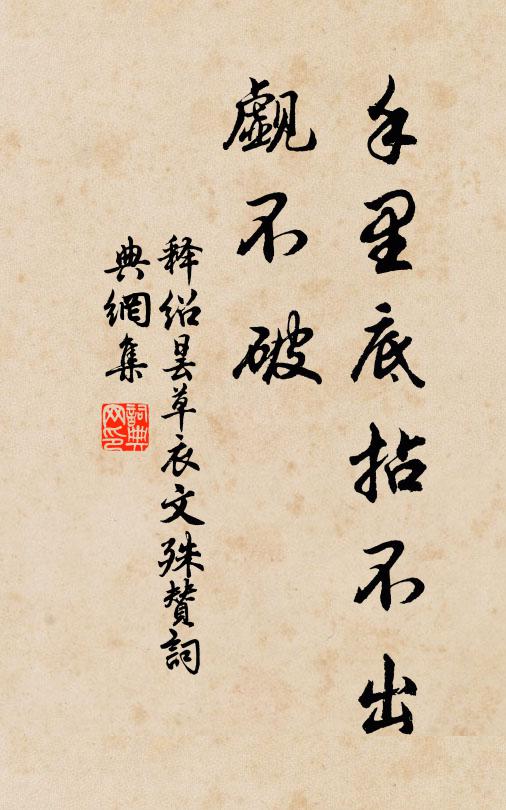 手里底拈不出
觑不破
释绍昙草衣文殊赞词
典網集
詞典
网印